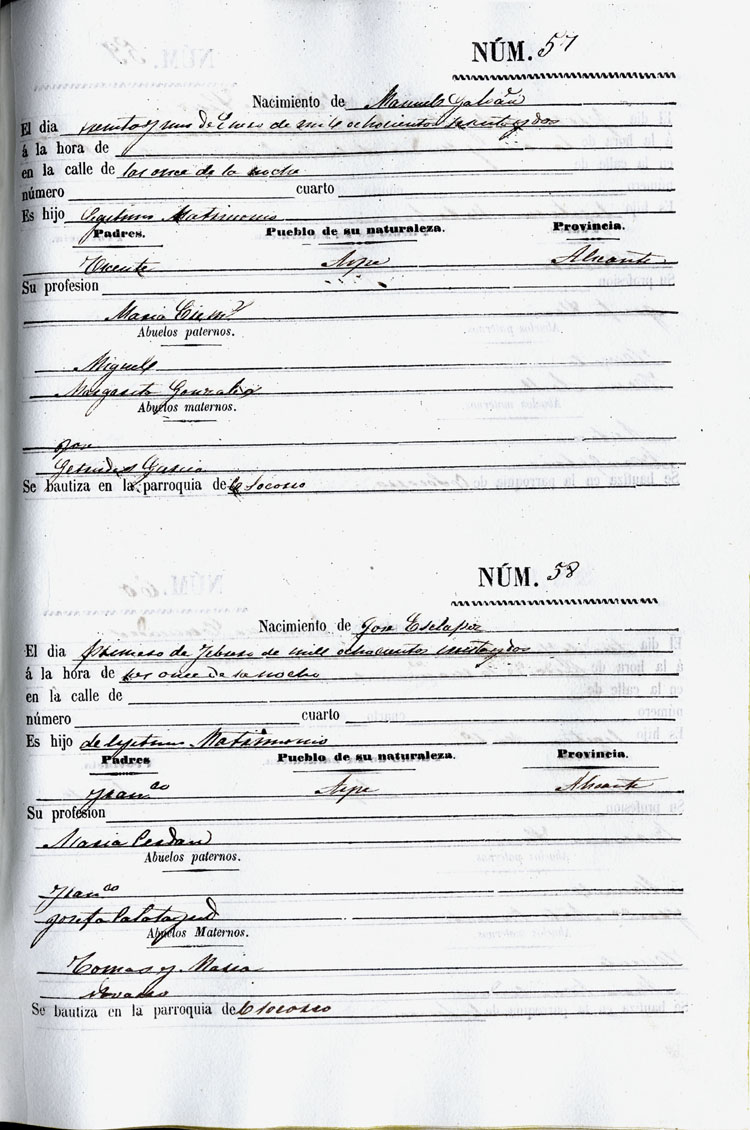 NÚM. 57
Nacimiento de Manuela Galvañ
El dia treinta y uno de Enero de mil ochocientos sesenta y dos
á la hora de
en la calle de las once de la noche
número cuarto
Es hijo Legitimo Matrimonio
Padres. Pueblo de su naturaleza. Provincia.
Vicente Aspe Alicante
Su profesion
Maria
Abuelos paternos.
Miguel
Margarita Gonzalez
Abuelos maternos.
José
Gertrudis Garcia
Se bautiza en la parroquia de el Socorro
NÚM. 58
Nacimiento de José Esclapez
El dia primero de Febrero de mill ochocientos sesenta y dos
á la hora de las once de la noche
en la calle de
número cuarto
Es hijo de legitimo Matrimonio
Padres Pueblo de su naturaleza. Provincia.
Franco Aspe Alicante
Su profesion
Maria Cerdan
Abuelos paternos.
Franco
Josefa Calatayud
Abuelos Maternos.
Tomas y Maria
Se bautiza en la parroquia de el Socorro